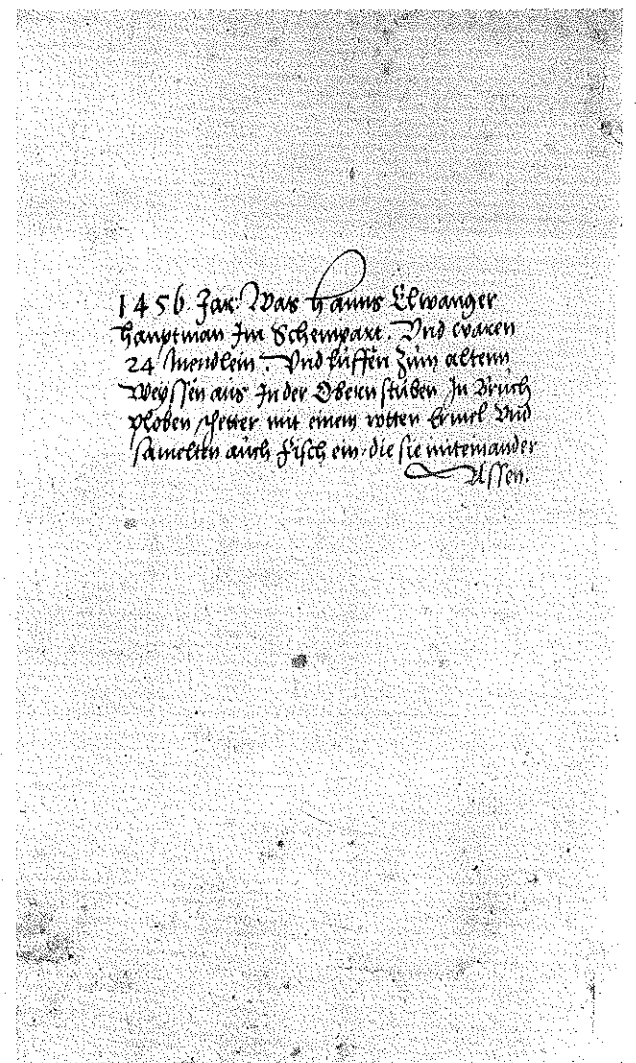 1456 Jar. War Hanns Elwanger
Hauptman Im Schempart. Vnd waren
24 Mendlein. Vnd luffen Zum altenn
Weyssen aus In der Obern stuben In
ploben schetter mit einem rotten Ermel Vnd
samelten auch Fisch ein. die sie miteinander
Assen.